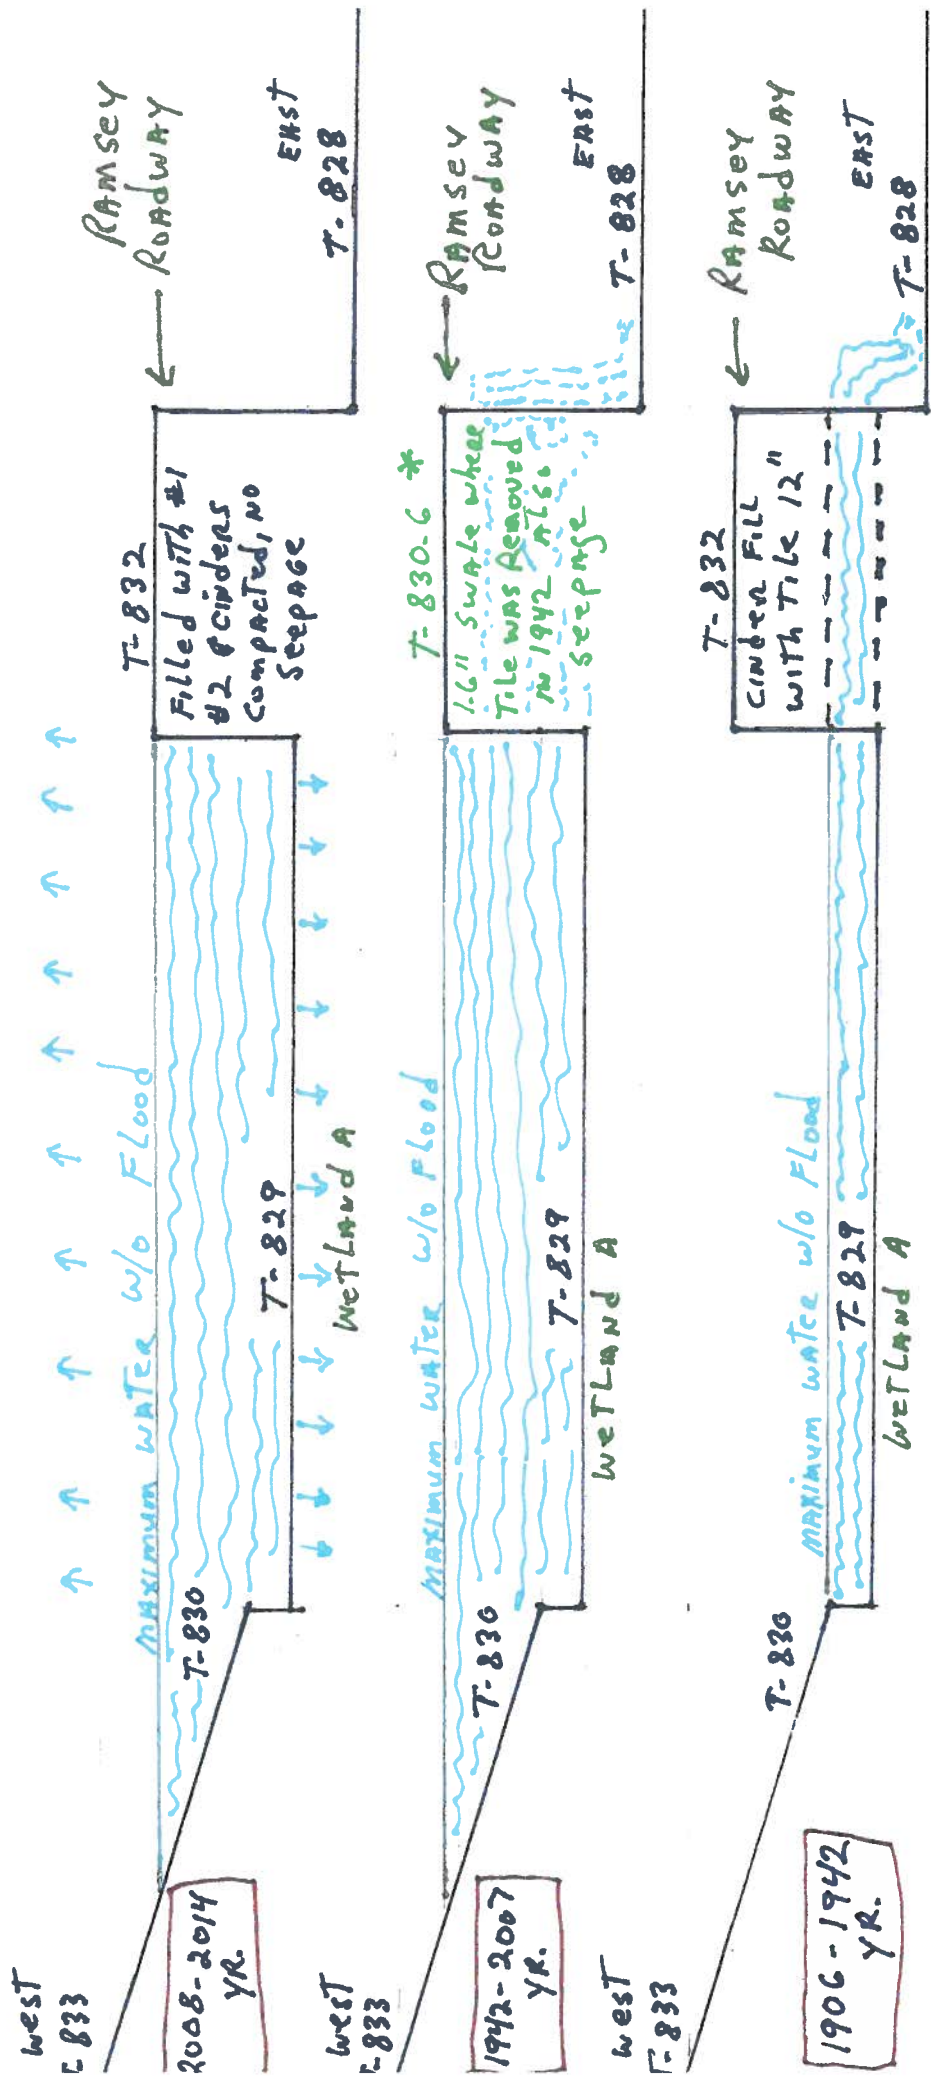 West
T-833
2008-2014
YR.
MAXIMUM WATER W/O FLOOD
T-830
T-829
WETLAND A
T-832
Filled with #1
#2 & CINDERS
COMPACTED, NO
SEEPAGE
RAMSEY
ROADWAY
EAST
T-828
West
T-833
1942-2007
YR.
MAXIMUM WATER W/O FLOOD
T-830
T-829
WETLAND A
T-830.6 *
1.6" SWALE where
TILE WAS REMOVED
IN 1942 ALSO
SEEPAGE
RAMSEY
ROADWAY
EAST
T-828
West
T-833
1906-1942
YR.
MAXIMUM WATER W/O FLOOD
T-830
T-829
WETLAND A
T-832
CINDER FILL
WITH TILE 12"
RAMSEY
ROADWAY
EAST
T-828